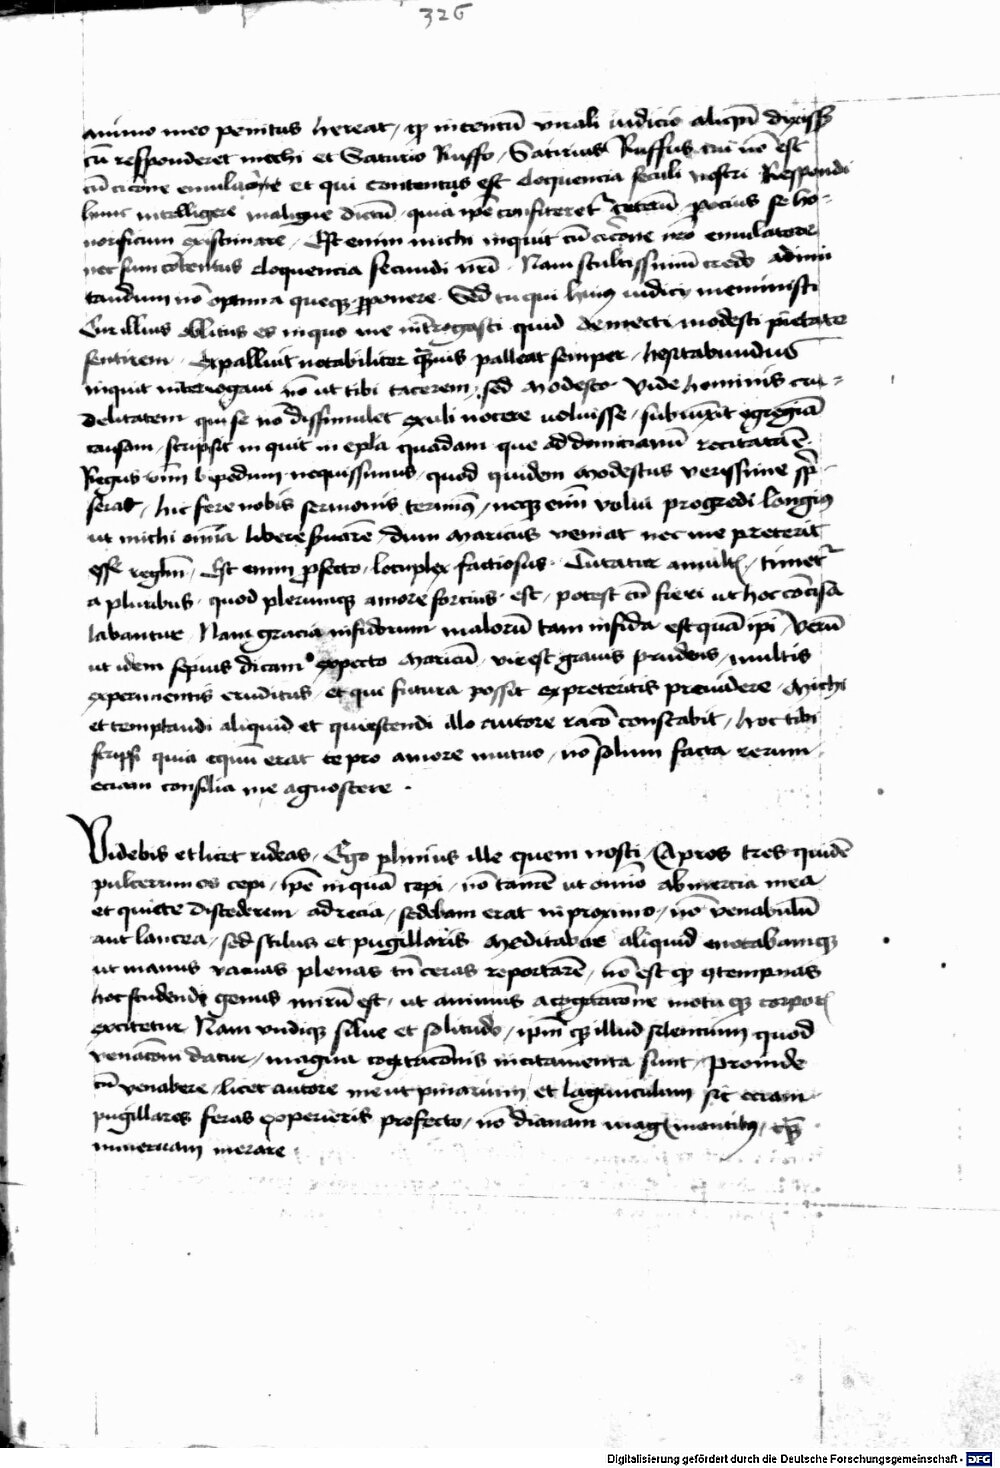 326
animo meo penitus hereat, qp in centū virali iudicio aliqn̄ dixiss
cū responderet mechi et Saturio Ruffo, Satirius Ruffus cui nō est
cū cicerōne emulacōne et qui contentus est eloquencia seculi nostri Respondi
hunc intelligere maligne dictū, quia ipē confiteret᷑ ceterū pocius se ho-
norificum existimare, Est enim michi inquit cū cicerōne nrō emulatore
nec sum cōtentus eloquencia secundi nrī. Nam stultissimū credo ad imi
tandum nō optima queqꝫ ꝓponere. Sed tu qui huius iudicij meministi
Cur illius oblitus es in quo me int̄rogasti quid de mecti modesti pietate
sentirem. Expalluit notabiliter qm̄uis palleat semper, hesitabundus
inquit interrogaui nō ut tibi tacerem, sed Modesto. Vide hominis cru=
delitatem qui se nō dissimulet exuli nocere uoluisse, subiūxit egregiā
causam, scripsit inquit in epl̄a quadam que ad domicianū recitata ē.
Regus om̄ bipedum nequissimus, quod quidem Modestus verissime scͥp
serat, hic fere nobis sermonis terminꝰ, neqꝫ enī volui progredi longiꝰ
ut michi omīa libere ẜuarē, dum Maricus veniat nec me preterit
esse regl̄m, Est enim ꝓfecto, locuplex factiosus. Curatur a multꝭ, timet᷑
a pluribus, quod plerumqꝫ amore forcius est, potest tn̄ fieri ut hoc cōcussa
labantur, Nam gracia infidorum malorū tam infida est quā ipī, Verū
ut idem sepius dicam expecto Maricū, vir est grauis prudens, multis
experimentis eruditus, et qui futura possit ex preteritis preuidere, Michi
et temptandi aliquid et quiescendi illo autore racō constabit, hoc tibi
scripsi quia equū erat te pro amore mutuo, nō solum facta rerum,
eciam consilia me agnoscere.
Videbis et licet rideas, Ego plinius ille quem nosti, Apros tres quidē
pulcerrimos cepi, ipē inquā cepi, nō tamē ut omīo ab inercia mea
et quiete discederem, ad recia, sedebam erat in proximo, nō venabulū
aut lancea, sed stilus et pugillaris Meditabar aliquid enotabamqꝫ
ut manus vacuas plenas tn̄ ceras reportarē, nō est qp ꝯtempnas
hoc studendi genus mirū est, ut animus a cogitacōne motuqꝫ corporꝭ
excitetur Nam vndiqꝫ silue et solitudo, ipm̄qꝫ illud silentium quod
venacōni datur, magna cogitacōnis incitamenta sunt, Proinde
cū venabere, licet autore me ut pinarium et lagunculam sic eciam
pugillares feras experieris profecto, nō dianam magꝭ montibꝰ, qꝫ
mineruam inerare.
Digitalisierung gefördert durch die Deutsche Forschungsgemeinschaft - DFG